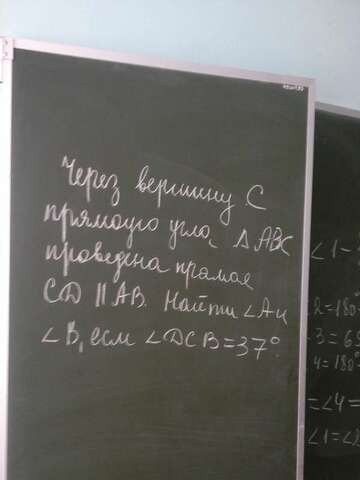 Через вершину С
прямого угла △ABC
проведена прямая
CD || AB. Найти ∠A и
∠B, если ∠DCB = 37°.
∠1 -
2 = 180°
3 = 6
4 = 180°
= ∠4 =
∠1 = ∠